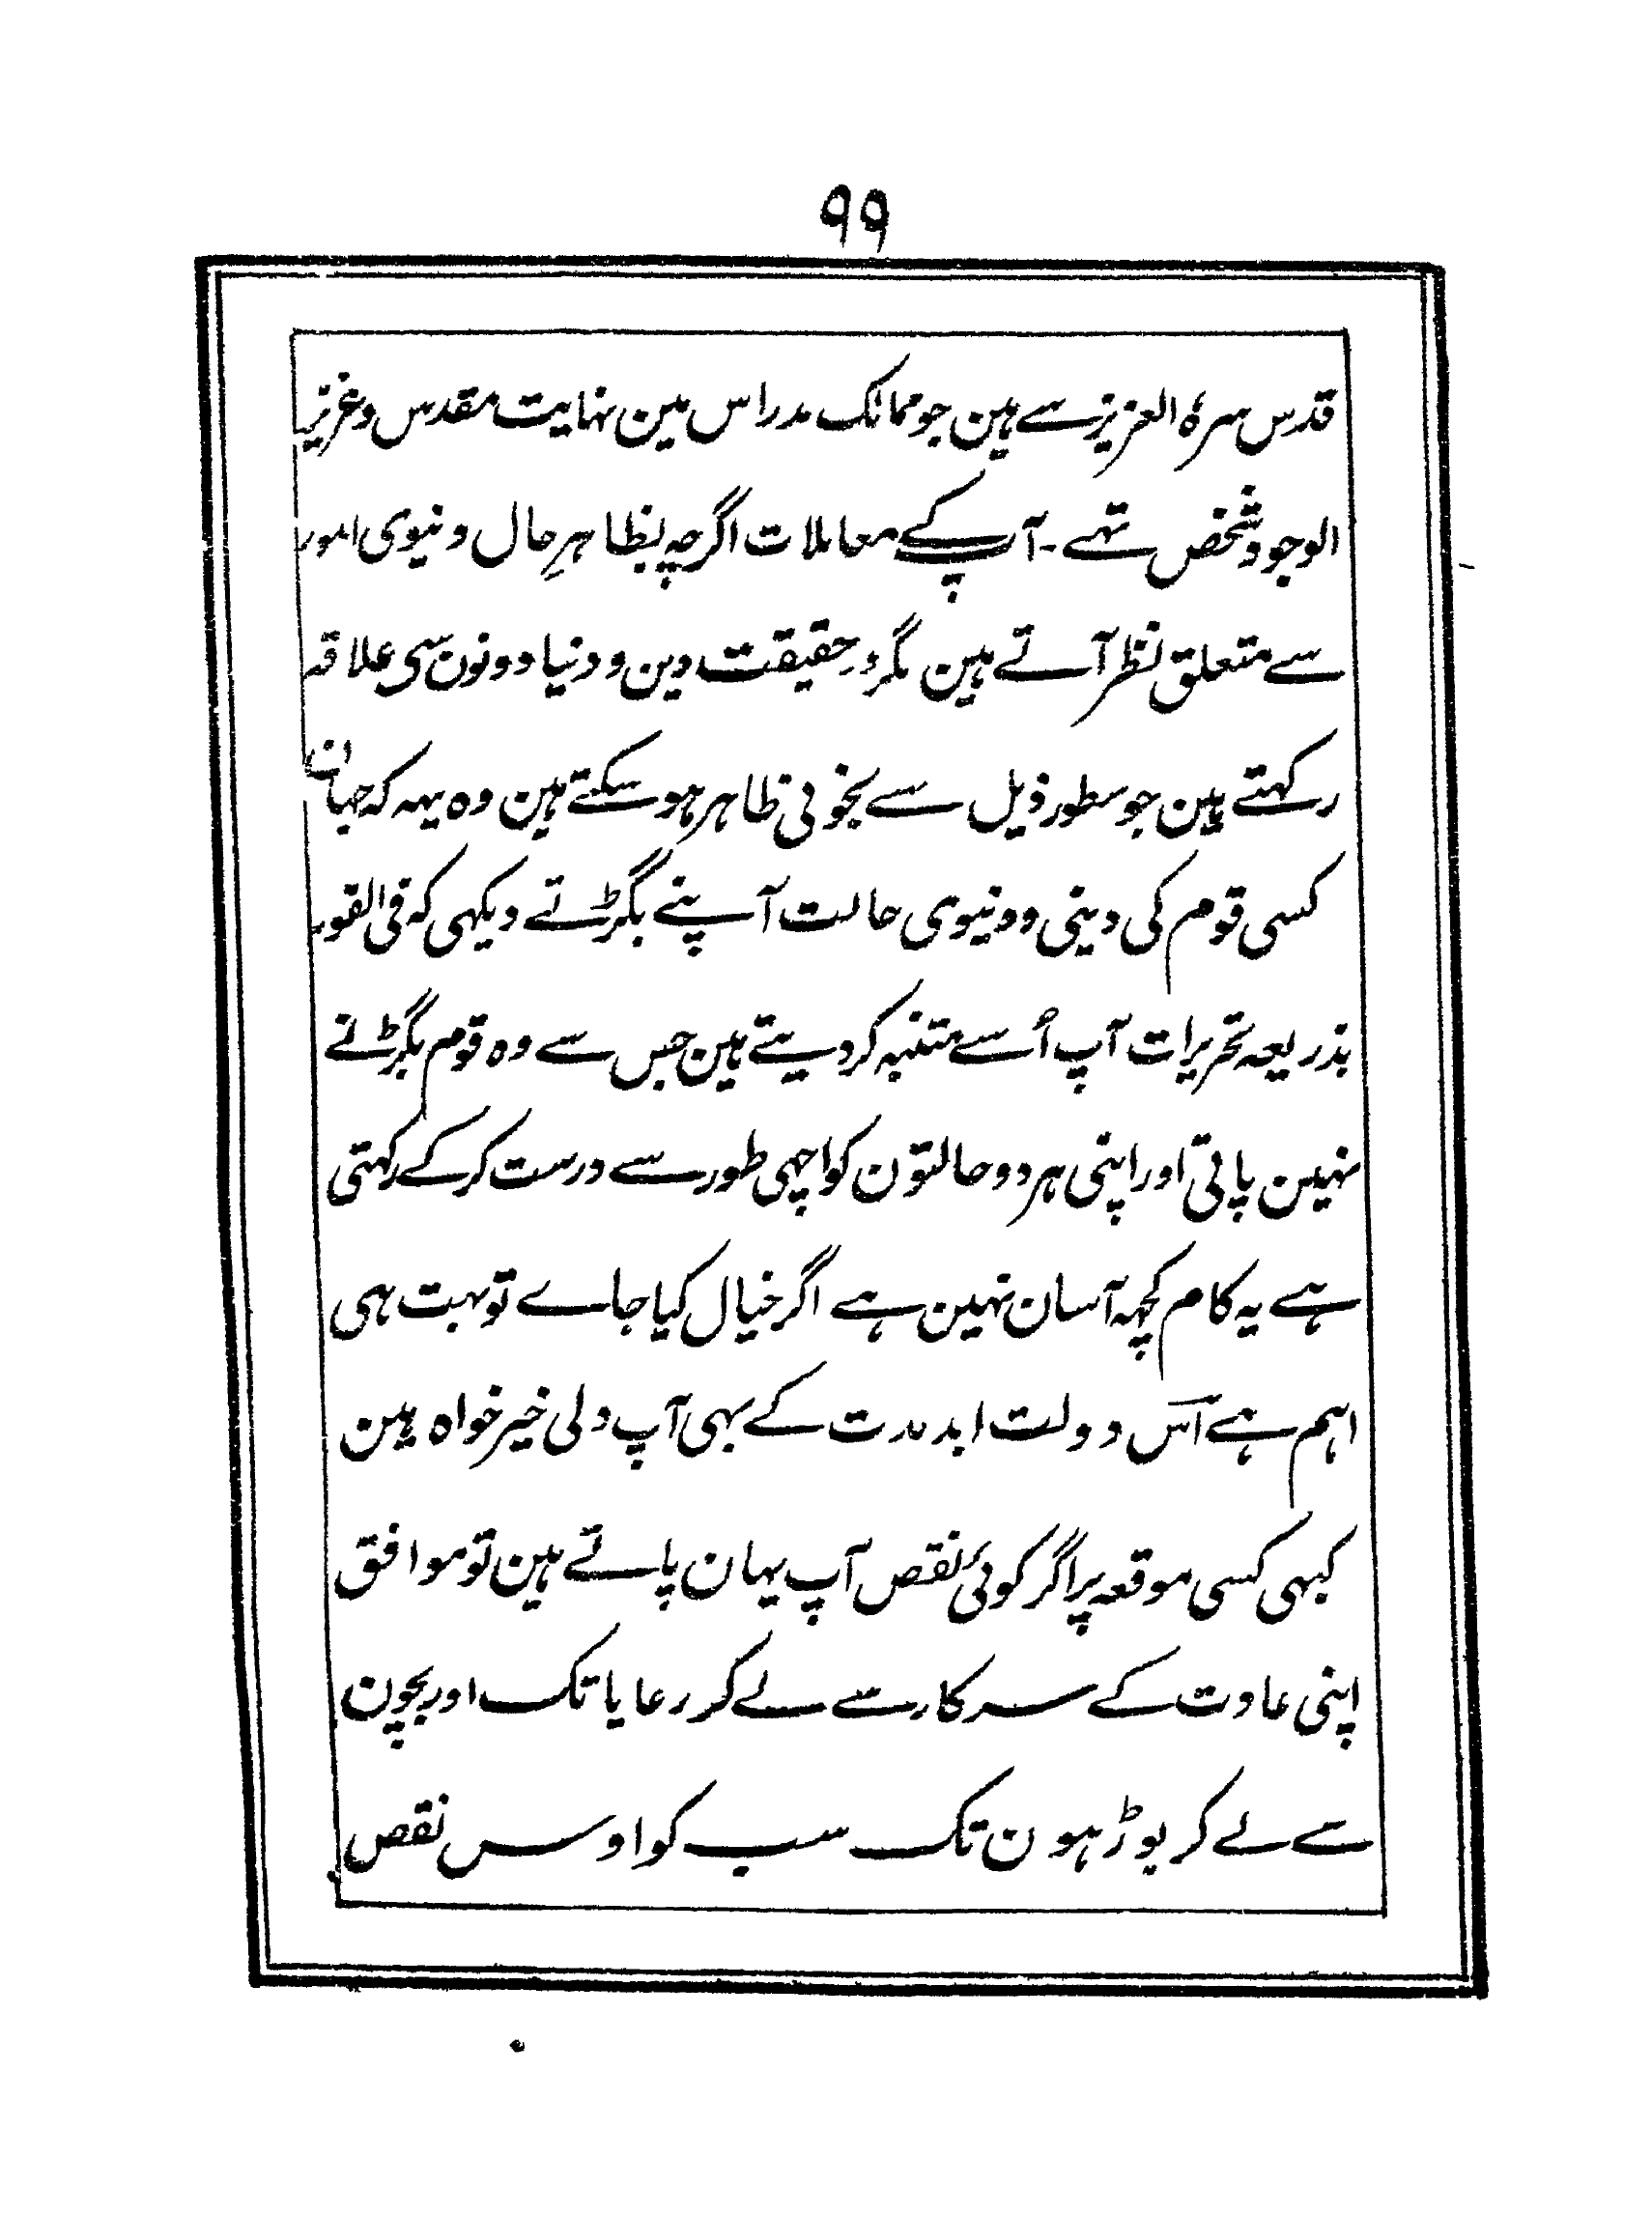 ۹۹
قدس سرہٗ العزیز سے ہین جو ممالک مدراس مین نہایت مقدس و عزیز
الوجود شخص تہے۔ آپ کے معاملات اگرچہ بظاہرِ حال دنیوی امور
سے متعلق نظر آتے ہین مگر درحقیقت دین و دنیا دونون سی علاقہ
رکہتے ہین جو سطور ذیل سے بخوبی ظاہر ہو سکتے ہین وہ یہہ کہ جہان
کسی قوم کی دینی و دنیوی حالت آپنے بگڑتے دیکہی کہ فی الفور
بذریعہ تحریرات آپ اُسے متنبہ کر دیتے ہین جس سے وہ قوم بگڑنے
نہین پاتی اور اپنی ہر دو حالتون کو اچہی طور سے درست کر کے رکہتی
ہے یہ کام کچہہ آسان نہین ہے اگر خیال کیا جاے تو بہت ہی
اہم ہے اس دولت ابد مدت کے بہی آپ دلی خیر خواہ ہین
کبہی کسی موقعہ پر اگر کوئی نقص آپ یہان پاتے ہین تو موافق
اپنی عادت کے سرکار سے لے کر رعایا تک اور بچون
سے لے کر بوڑہون تک سب کو اوس نقص